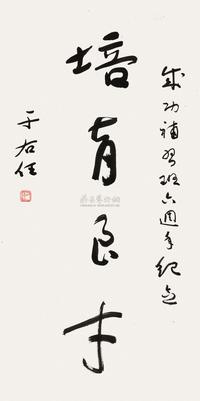 成功補習班六週年紀念
培育良才
于右任